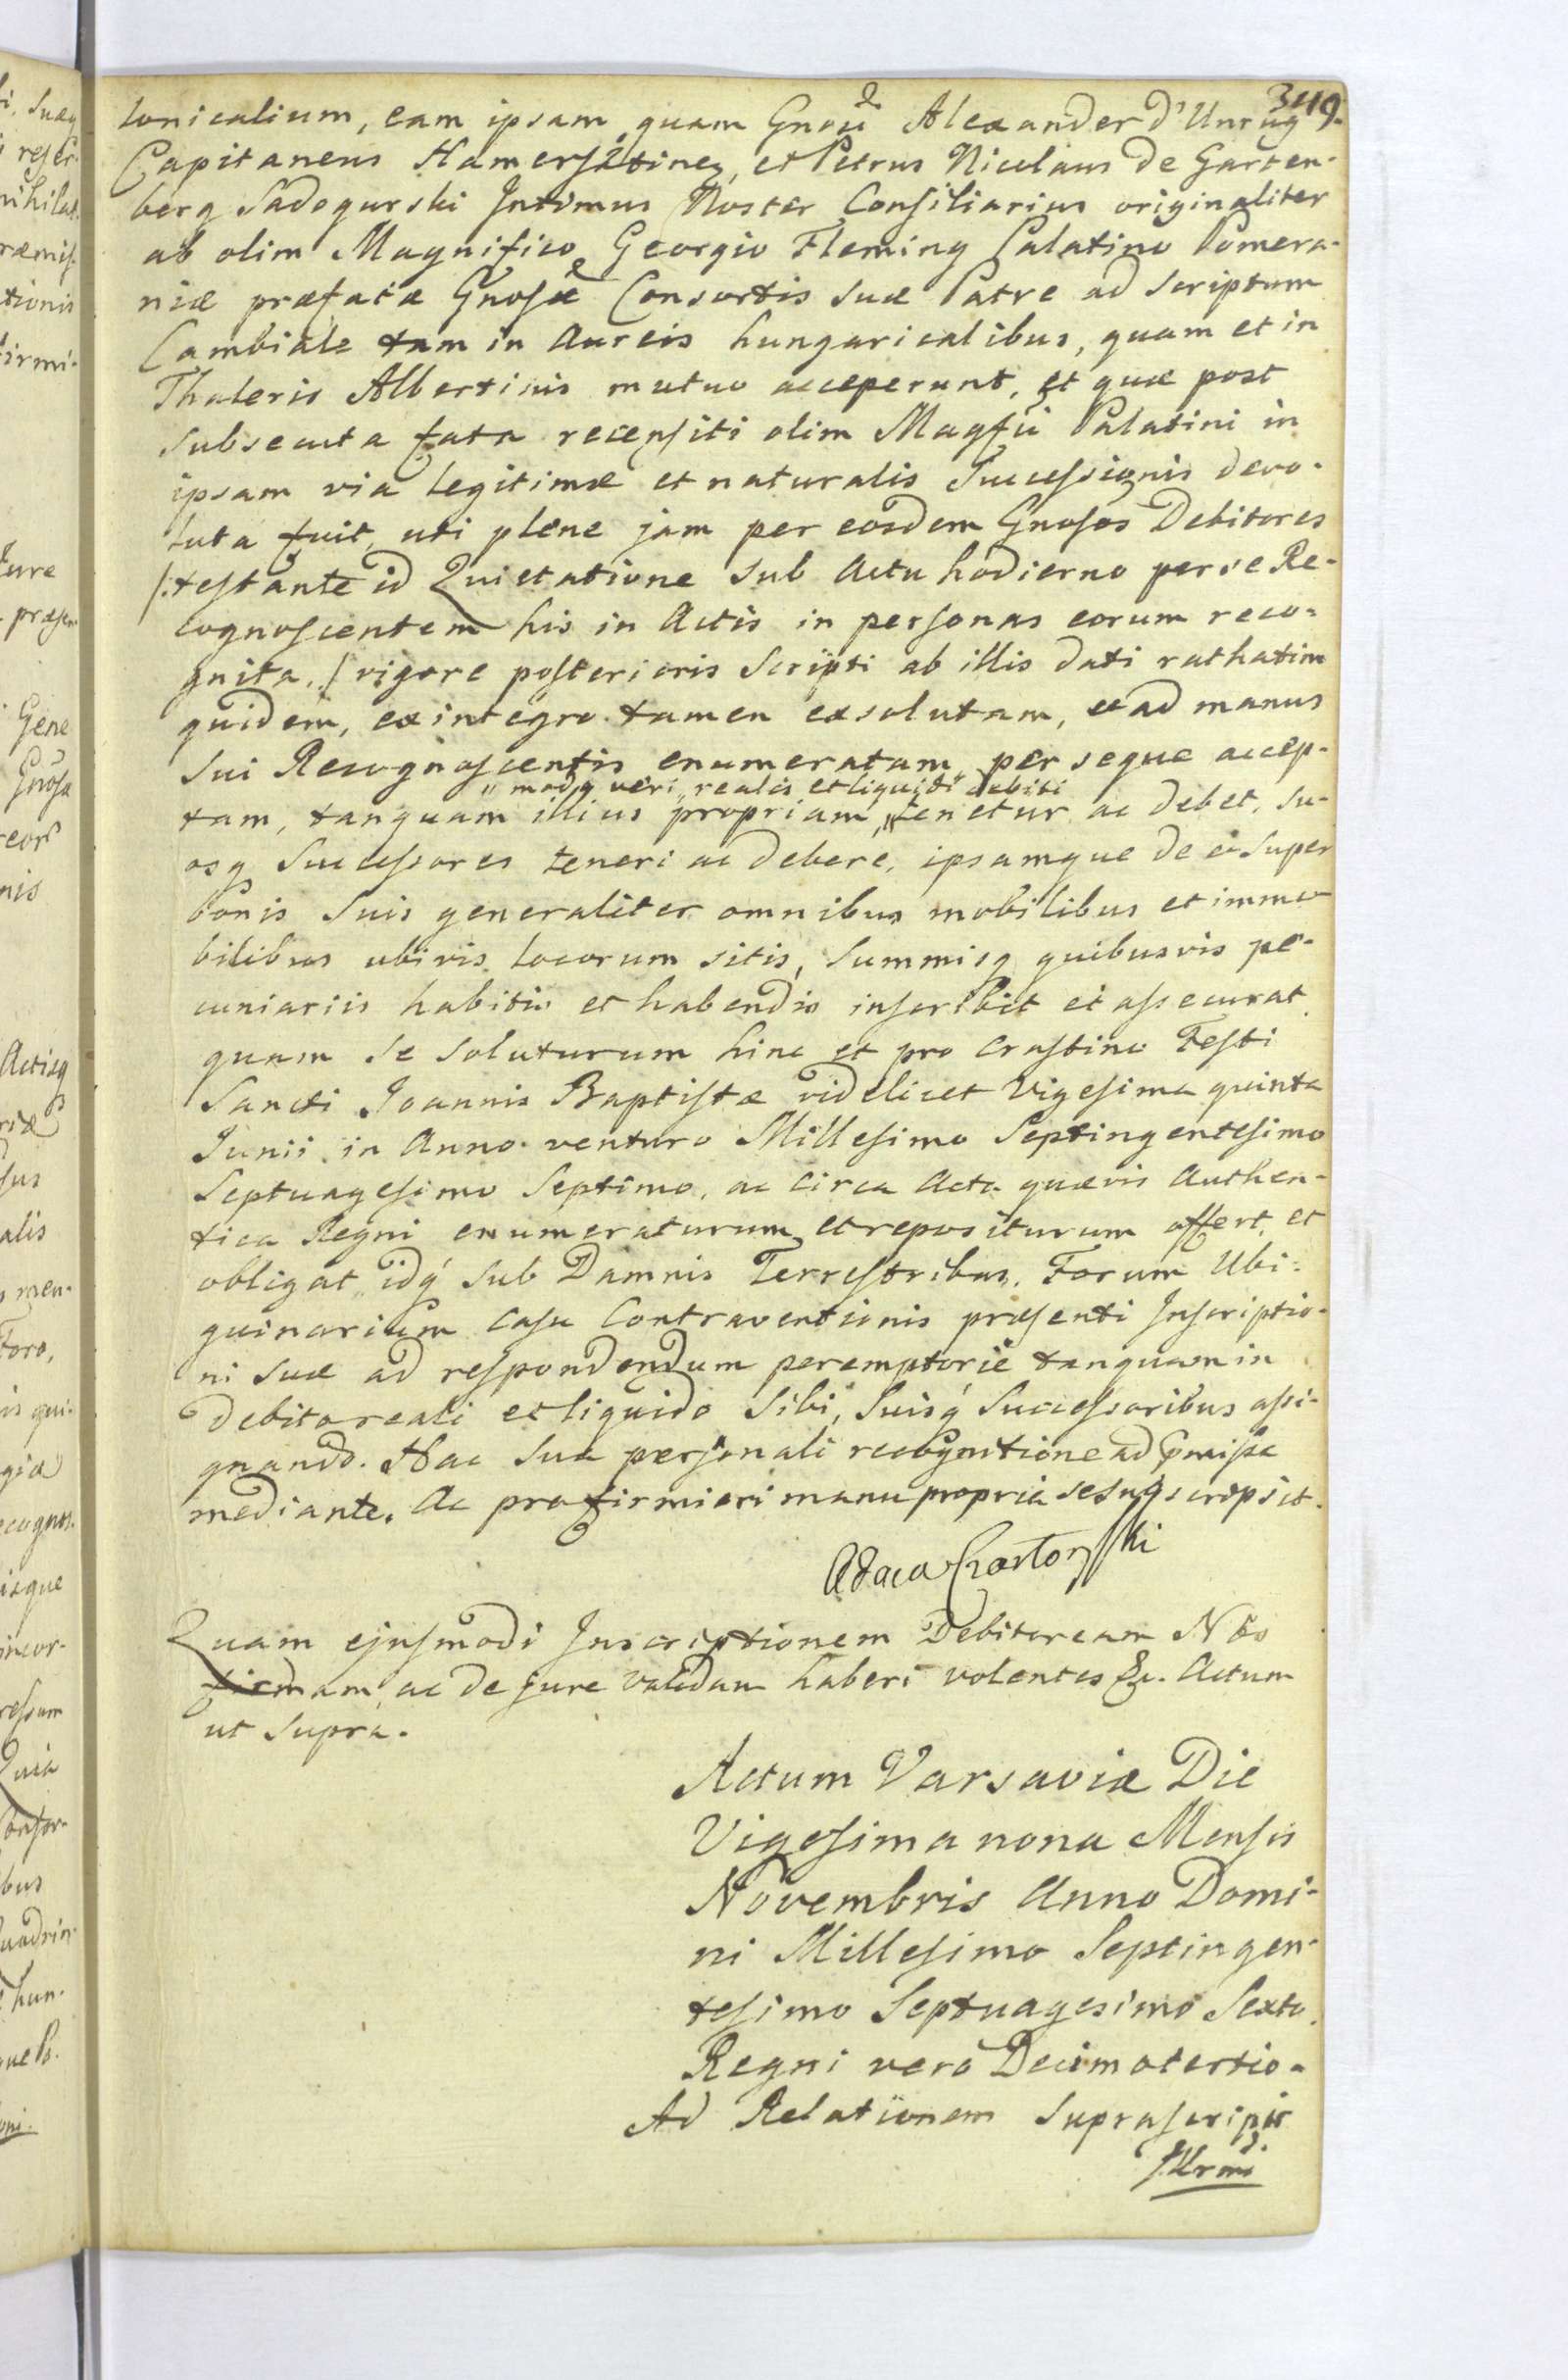 349.
lonicalium, eam ipsam quam Gnosi Alexander d'Unrug
Capitaneus Hamerstinez, et Petrus Nicolaus de Garten-
berg Sadogurski Intimus Noster Consiliarius originaliter
ab olim Magnifico Georgio Fleming Palatino Pomera-
niæ præfatæ Gnosæ Consortis suæ Patre ad scriptum
Cambiale tam in Aureis hungaricalibus, quam et in
Thaleris Albertinis mutuo acceperunt, et quæ post
subsecuta fata recensiti olim Magfci Palatini in
ipsam via legitimæ et naturalis Successionis devo-
luta fuit, uti plene jam per eosdem Gnosos Debitores
/:testante id Quietatione sub Actu hodierno per se Re-
cognoscentem his in Actis in personas eorum reco-
gnita./ vigore posterioris Scripti ab illis dati rathatim
quidem, ex integro tamen exsolutam, et ad manus
sui Recognoscentis enumeratam per seque accep-
" modoq veri, realis et liquidi debiti
tam, tanquam illius propriam," tenetur ac debet, su-
osq Successores teneri ac debere, ipsamque de et super
bonis suis generaliter omnibus mobilibus et immo
bilibus ubivis locorum sitis, summisq quibusvis pe-
cuniariis habitis et habendis inscribit et assecurat
quam se soluturum hinc et pro crastino Festi
Sancti Joannis Baptistæ videlicet Vigesima quinta
Junii in Anno venturo Millesimo Septingentesimo
Septuagesimo Septimo, ac circa Acta quævis Authen-
tica Regni enumeraturum et repositurum offert, et
obligat, idq́ sub Damnis Terrestribus. Forum Ubi-
quinarium casu Contraventionis præsenti Inscriptio-
ni suæ ad respondendum peremptorie tanquam in
debito reali et liquido sibi, suisq́ Successoribus assi-
gnando. Hac sua personali recognitione ad præmissa
mediante. Ac pro firmiori manu propria se subscripsit.
Adam Czartoryski
Quam ejusmodi Inscriptionem Debitoream Nos
firmam ac de jure validam haberi volentes &c. Actum
ut supra.
Actum Varsaviæ Die
Vigesima nona Mensis
Novembris Anno Domi-
ni Millesimo Septingen-
tesimo Septuagesimo Sexto.
Regni vero Decimo tertio.
Ad Relationem suprascripti